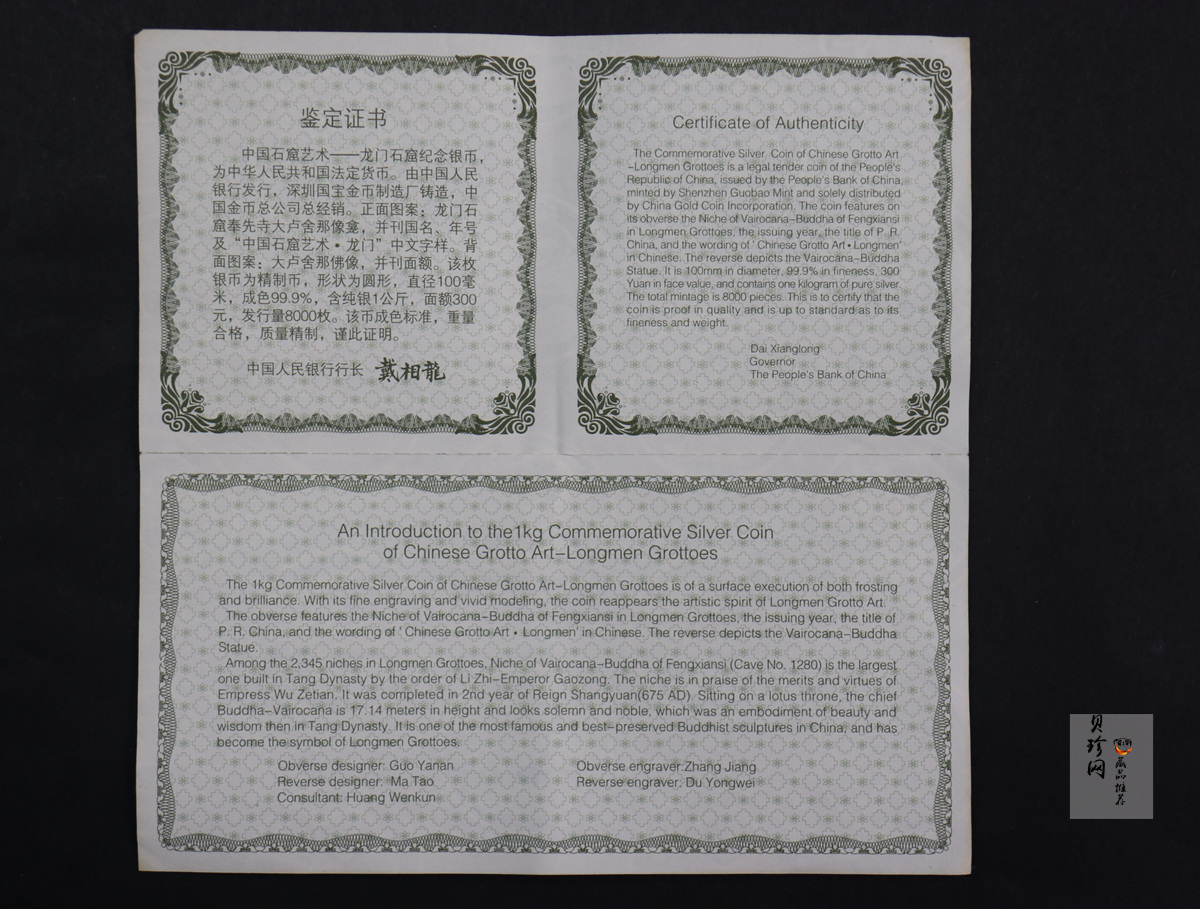 鉴定证书
中国石窟艺术——龙门石窟纪念银币，
为中华人民共和国法定货币。由中国人民
银行发行，深圳国宝金币制造厂铸造，中
国金币总公司总经销。正面图案：龙门石
窟奉先寺大卢舍那像龛，并刊国名、年号
及“中国石窟艺术·龙门”中文字样。背
面图案：大卢舍那佛像，并刊面额。该枚
银币为精制币，形状为圆形，直径100毫
米，成色99.9%，含纯银1公斤，面额300
元，发行量8000枚。该币成色标准，重量
合格，质量精制，谨此证明。
中国人民银行行长 戴相龍
Certificate of Authenticity
The Commemorative Silver Coin of Chinese Grotto Art
-Longmen Grottoes is a legal tender coin of the People's
Republic of China, issued by the People's Bank of China,
minted by Shenzhen Guobao Mint and solely distributed
by China Gold Coin Incorporation. The coin features on
its obverse the Niche of Vairocana-Buddha of Fengxiansi
in Longmen Grottoes, the issuing year, the title of P. R.
China, and the wording of ' Chinese Grotto Art • Longmen'
in Chinese. The reverse depicts the Vairocana-Buddha
Statue. It is 100mm in diameter, 99.9% in fineness, 300
Yuan in face value, and contains one kilogram of pure silver.
The total mintage is 8000 pieces. This is to certify that the
coin is proof in quality and is up to standard as to its
fineness and weight.
Dai Xianglong
Governor
The People's Bank of China
An Introduction to the 1kg Commemorative Silver Coin
of Chinese Grotto Art-Longmen Grottoes
The 1kg Commemorative Silver Coin of Chinese Grotto Art-Longmen Grottoes is of a surface execution of both frosting
and brilliance. With its fine engraving and vivid modeling, the coin reappears the artistic spirit of Longmen Grotto Art.
The obverse features the Niche of Vairocana-Buddha of Fengxiansi in Longmen Grottoes, the issuing year, the title of
P. R. China, and the wording of ' Chinese Grotto Art • Longmen' in Chinese. The reverse depicts the Vairocana-Buddha
Statue.
Among the 2,345 niches in Longmen Grottoes, Niche of Vairocana-Buddha of Fengxiansi (Cave No. 1280) is the largest
one built in Tang Dynasty by the order of Li Zhi-Emperor Gaozong. The niche is in praise of the merits and virtues of
Empress Wu Zetian. It was completed in 2nd year of Reign Shangyuan(675 AD). Sitting on a lotus throne, the chief
Buddha-Vairocana is 17.14 meters in height and looks solemn and noble, which was an embodiment of beauty and
wisdom then in Tang Dynasty. It is one of the most famous and best-preserved Buddhist sculptures in China, and has
become the symbol of Longmen Grottoes.
Obverse designer: Guo Yanan
Obverse engraver:Zhang Jiang
Reverse designer: Ma Tao
Reverse engraver: Du Yongwei
Consultant: Huang Wenkun
贝珍网
藏品推荐